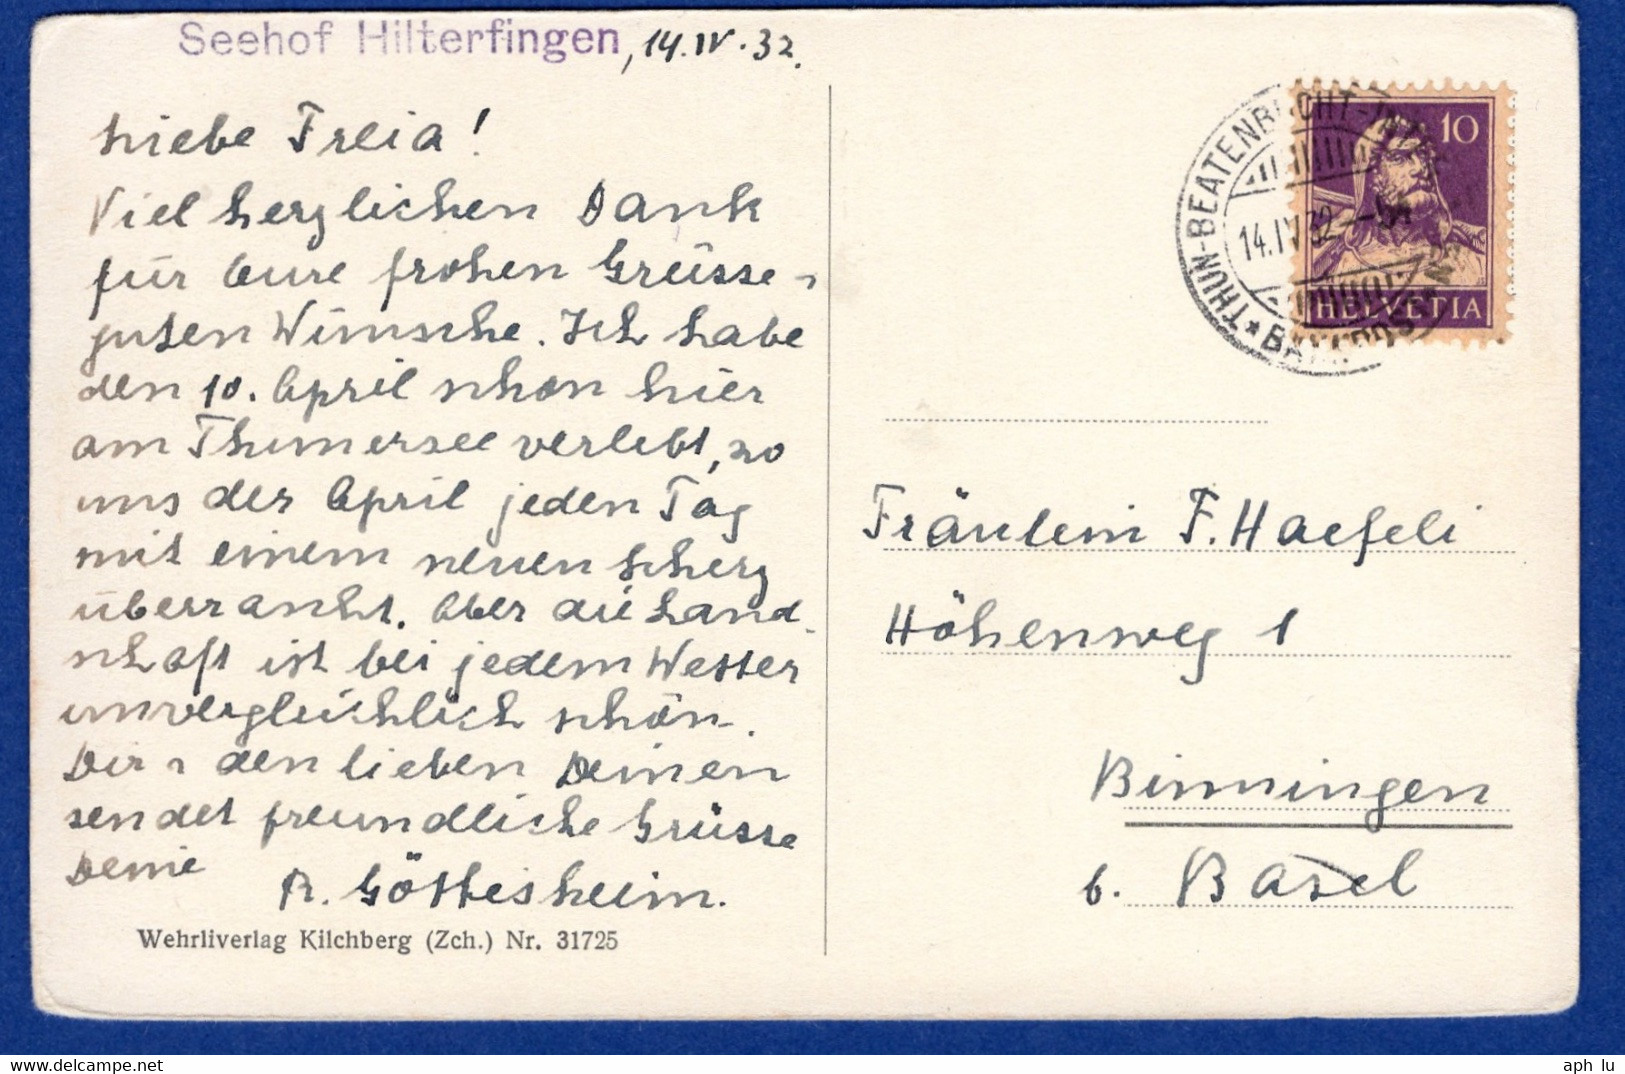 Seehof Hilterfingen, 14.IV.32.
Liebe Freia!
Viel herzlichen Dank
für Eure frohen Grüsse u
guten Wünsche. Ich habe
den 10. April schon hier
am Thunersee verlebt, wo
uns der April jeden Tag
mit einem neuen Scherz
überrascht. Aber die Land-
schaft ist bei jedem Wetter
unvergleichlich schön.
Dir u den lieben Deinen
sendet freundliche Grüsse
Deine
R. Göttisheim.
Wehrliverlag Kilchberg (Zch.) Nr. 31725
THUN-BEATENBUCHT-
14.IV.32
10
HELVETIA
Fräulein F. Haefeli
Höhenweg 1
Binningen
b. Basel
aph lu